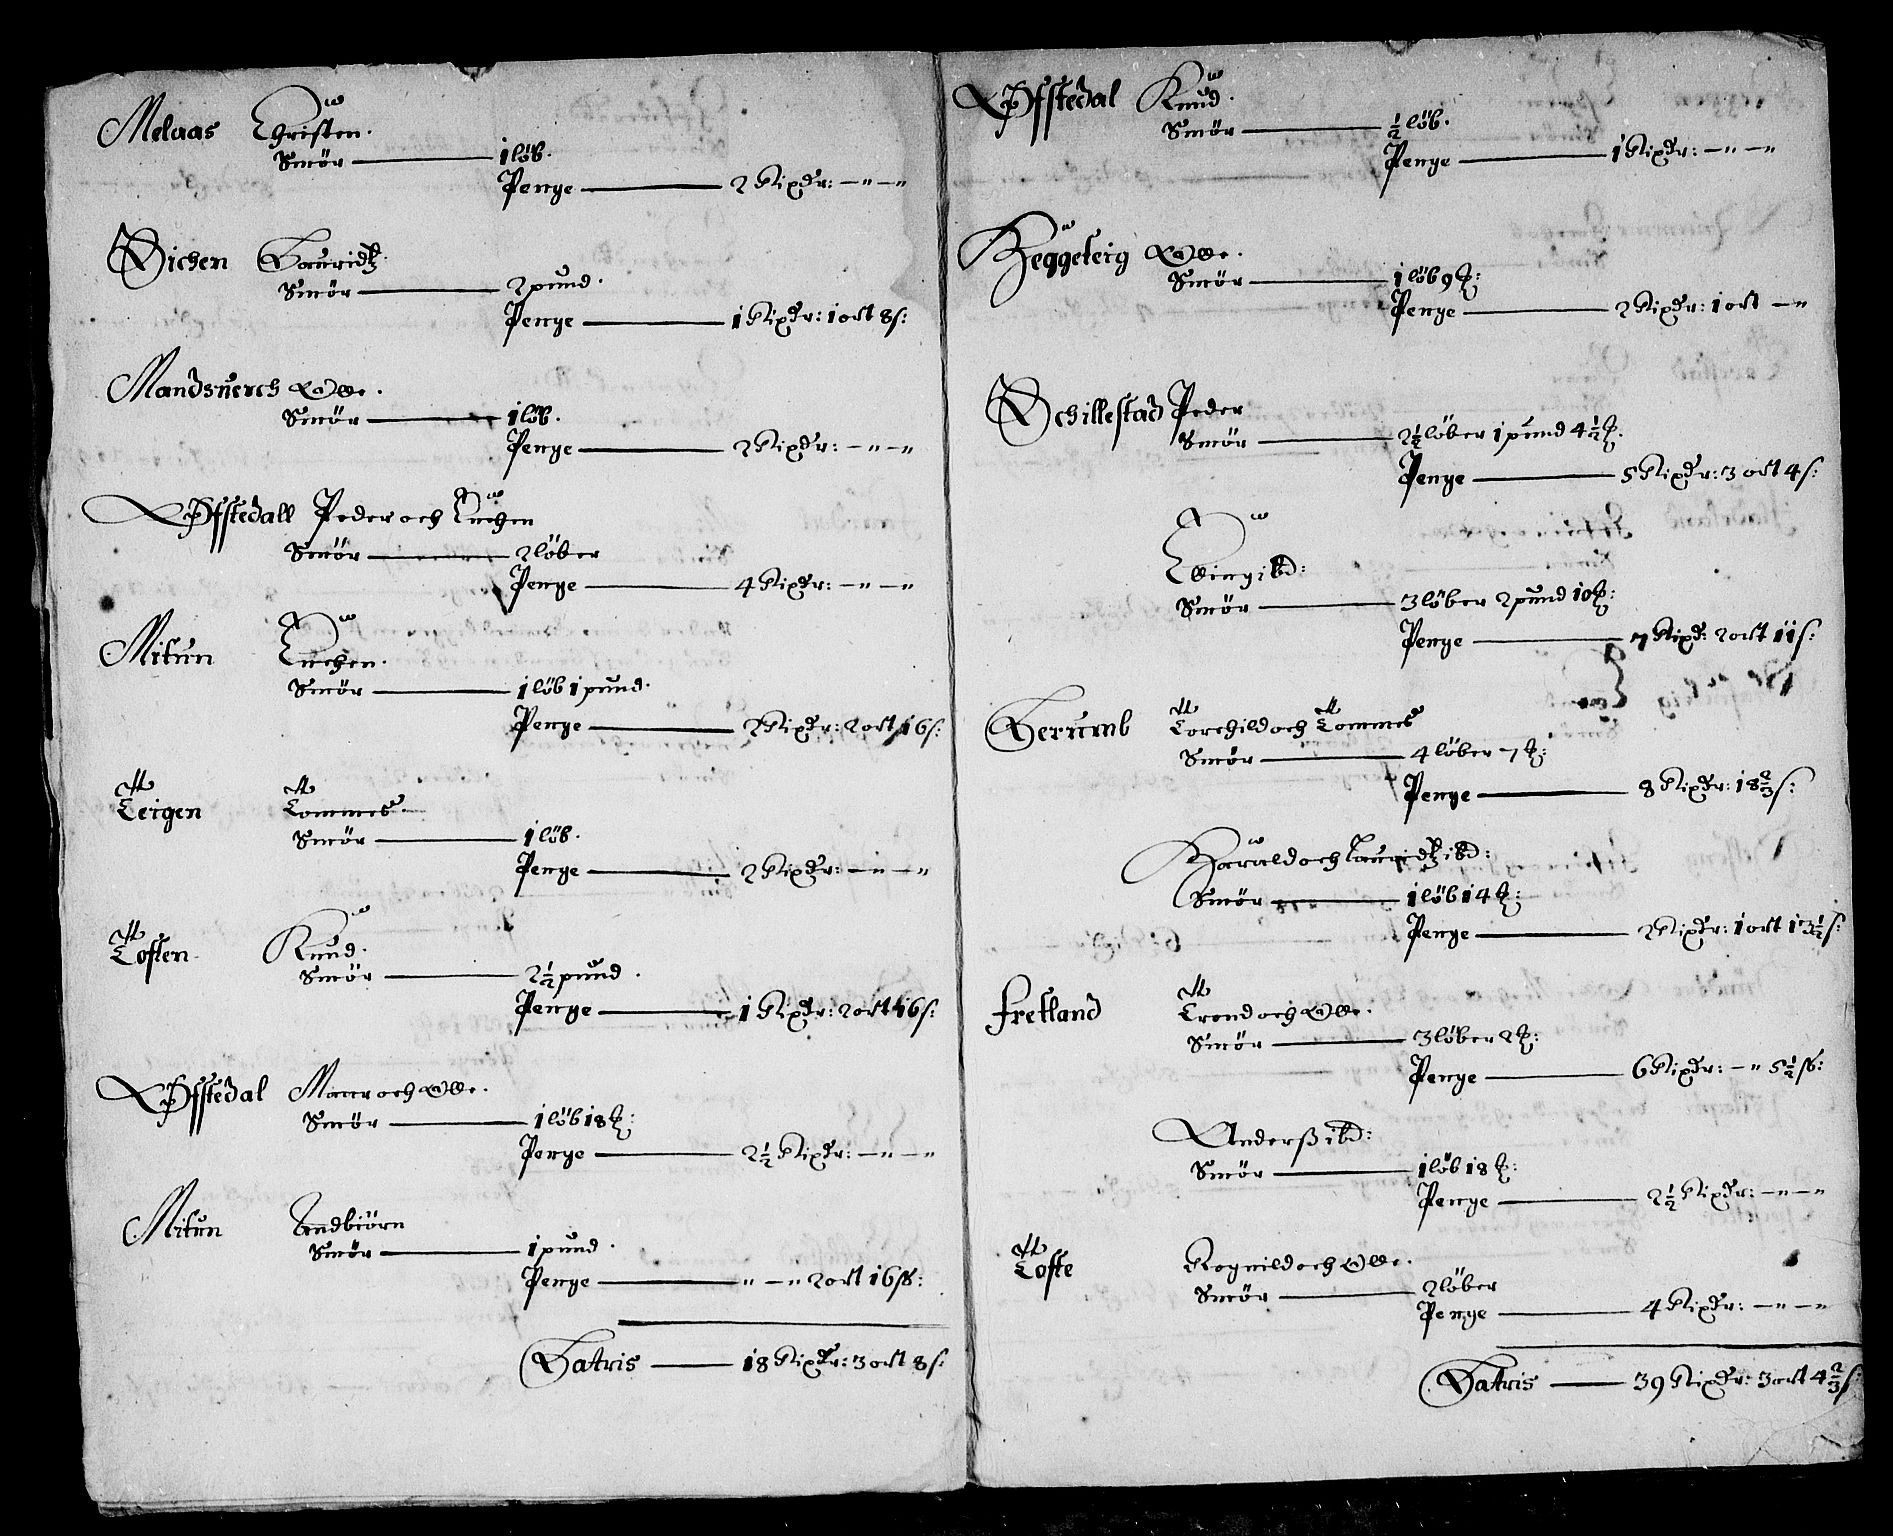 Melaas Christen.
Smör — 1 löb.
Penge — 2 Rixdr: — " — "
Dichen Lauridtz.
Smör — 2 pund.
Penge — 1 Rixdr: 1 ort 8 s:
Mandsuerch Olle.
Smör — 1 löb.
Penge — 2 Rixdr: — " — "
Offstedall Peder och Luchen
Smör — 2 löber
Penge — 4 Rixdr: — " — "
Mitun Luchen.
Smör — 1 löb 1 pund.
Penge — 2 Rixdr: 2 ort 16 s:
Teigen Tommes
Smör — 1 löb.
Penge — 2 Rixdr: — " — "
Toften Knud.
Smör — 2½ pund.
Penge — 1 Rixdr: 2 ort 16 s:
Offstedal Monr och Olle.
Smör — 1 löb 18 ℔:
Penge — 2½ Rixdr: — " — "
Mitun Andbiörn
Smör — 1 pund.
Penge — " — " 2 ort 16 ß:
Latris — 18 Rixdr: 3 ort 8 s:
Offstedal Knud.
Smör — ½ löb.
Penge — 1 Rixdr: — " — "
Heggeteig Olle.
Smör — 1 löb 9 ℔:
Penge — 2 Rixdr: 1 ort — "
Schillestad Peder
Smör — 2½ löber 1 pund 4½ ℔.
Penge — 5 Rixdr: 3 ort 4 s:
Elling ibd:
Smör — 3 löber 2 pund 10 ℔:
Penge — 7 Rixd: 2 ort 11 s:
Berumb Torchild och Tommes
Smör — 4 löber 7 ℔:
Penge — 8 Rixdr: 18⅔ s:
Harald och Lauridtz ibd:
Smör — 1 löb 14 ℔:
Penge — 2 Rixdr: 1 ort 13½ s:
Fretland Trond och Olle.
Smör — 3 löber 2 ℔:
Penge — 6 Rixdr: — " 5½ ß:
Anderß ibd:
Smör — 1 löb 18 ℔:
Penge — 2½ Rixdr: — " — "
Tofte Rognild och Olle.
Smör — 2 löber
Penge — 4 Rixdr: — " — "
Latris — 39 Rixdr: 3 ort 4⅔ s: